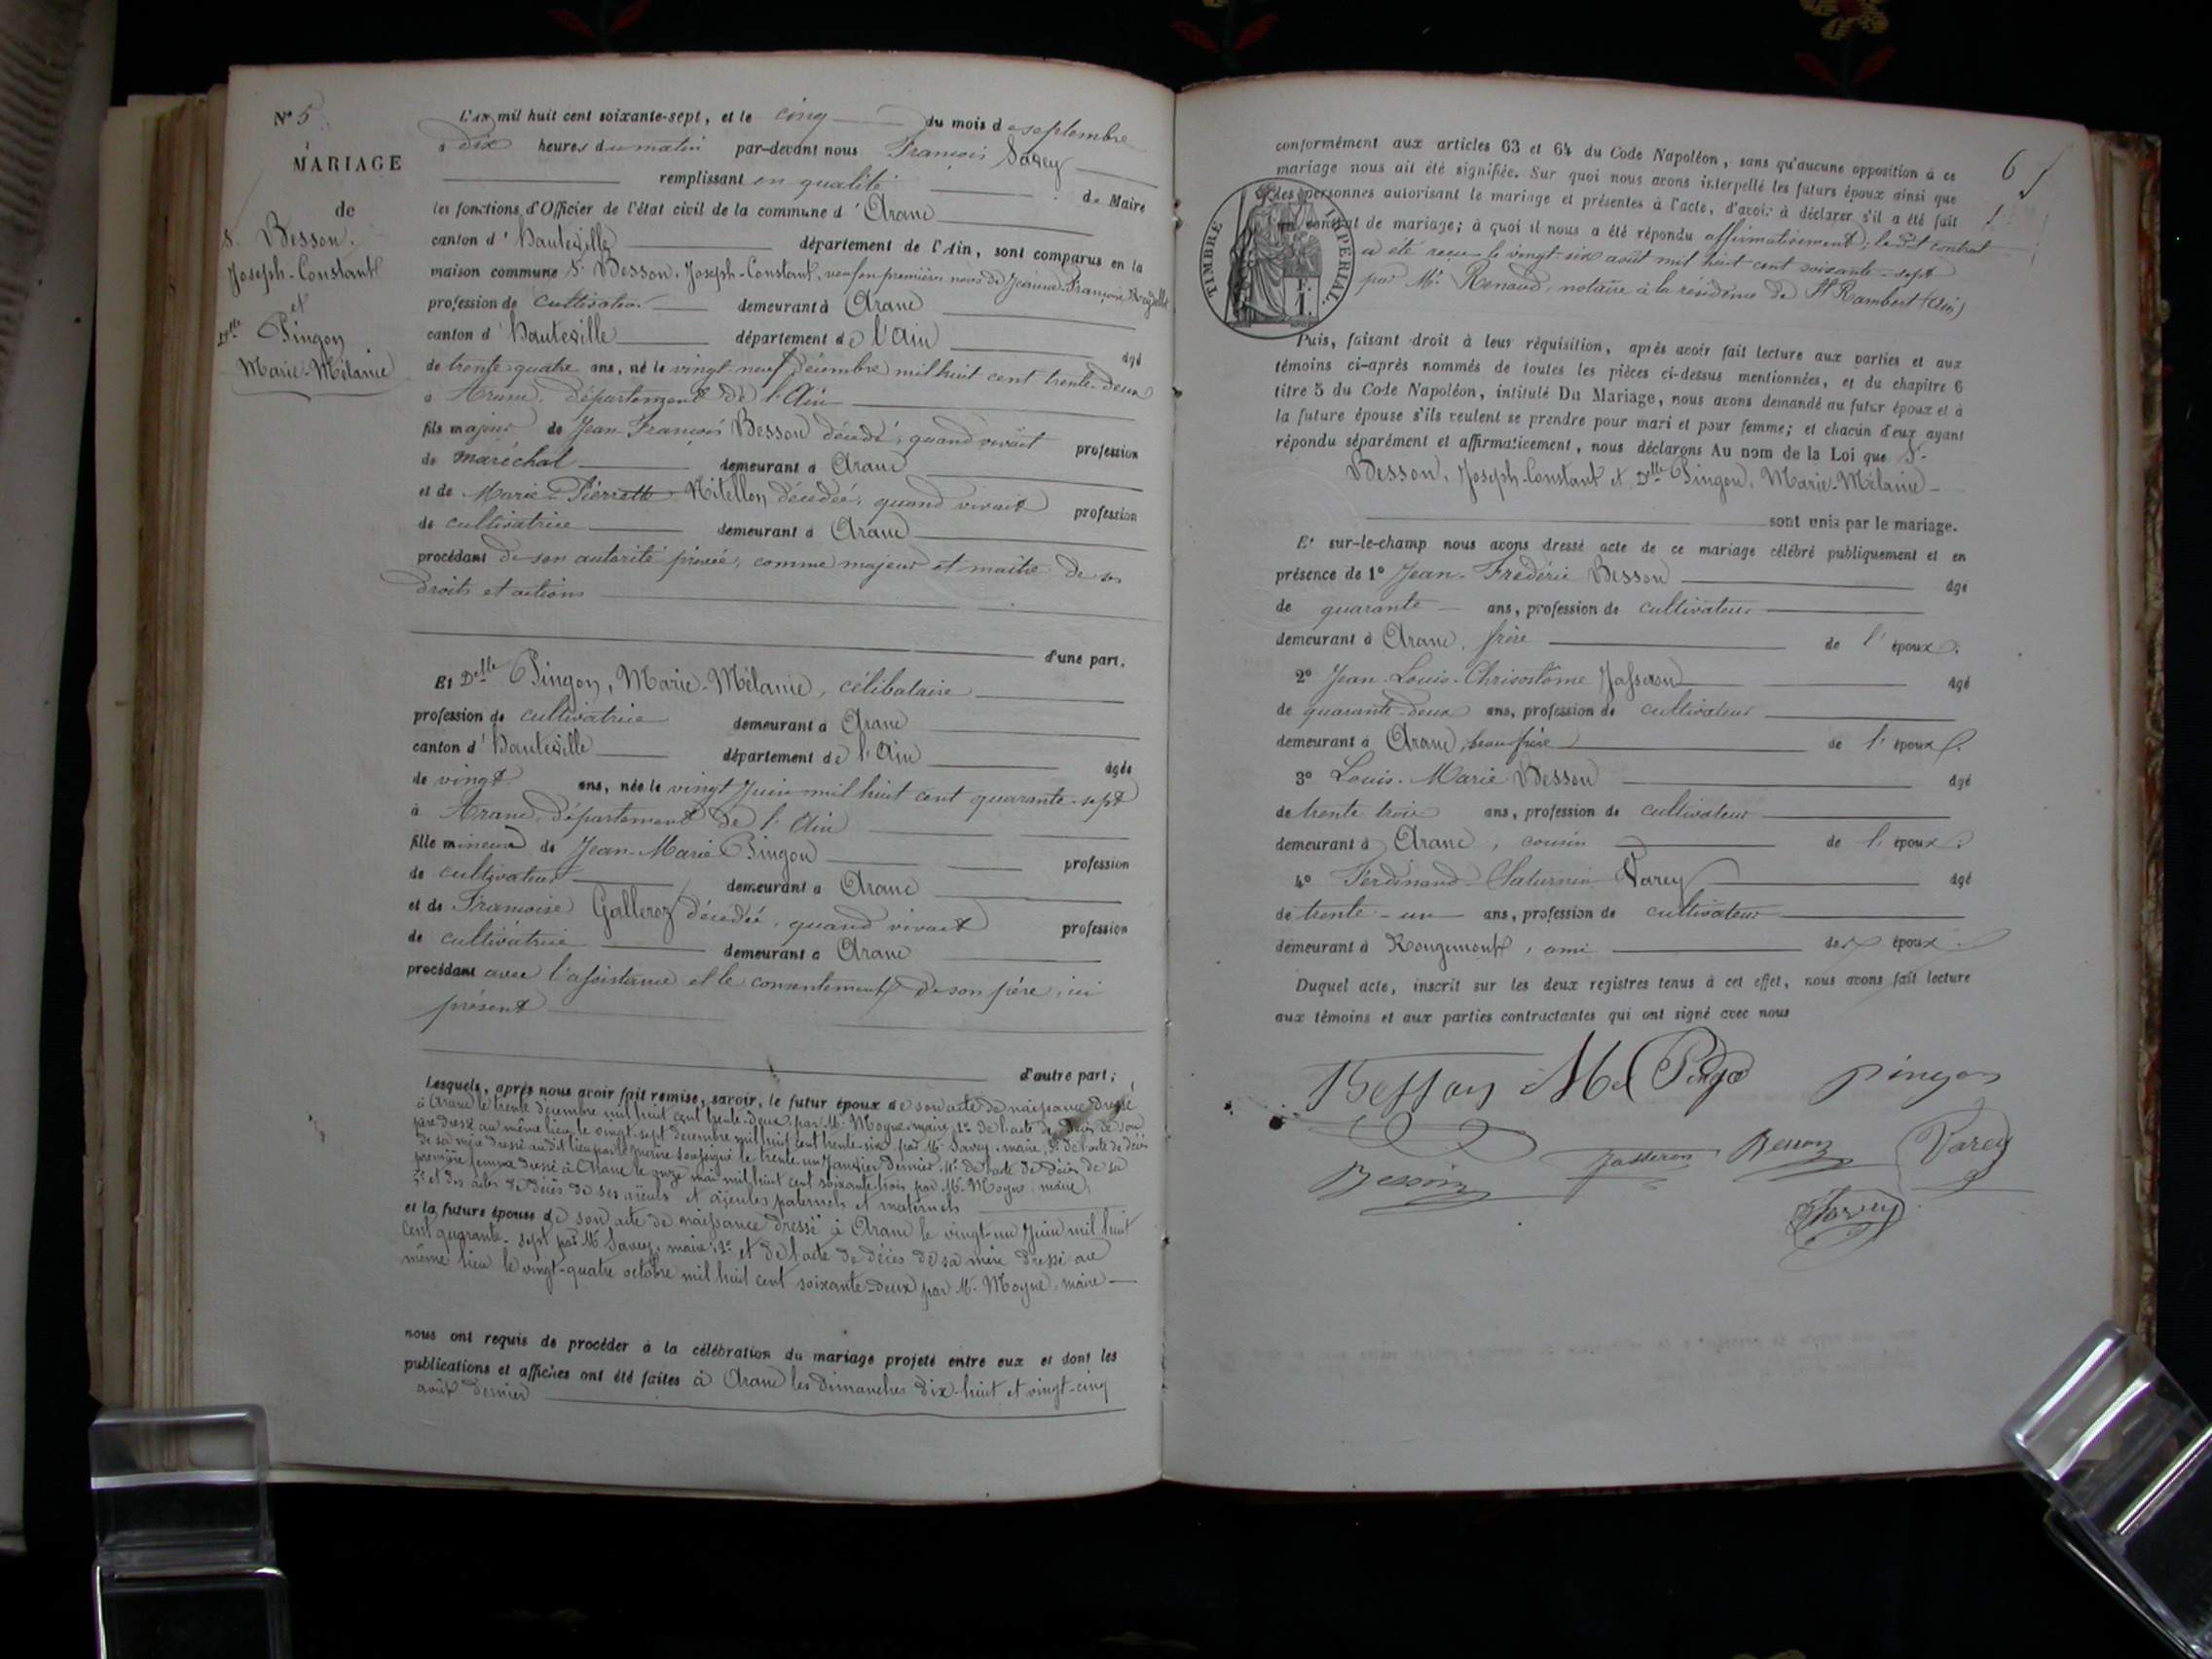 N° 5
MARIAGE
de
S. Besson,
Joseph-Constant
et
Delle Pingon
Marie-Mélanie
L'an mil huit cent soixante-sept, et le cinq du mois de septembre
à dix heures du matin par-devant nous François Savey
remplissant en qualité de Maire
les fonctions d'Officier de l'état civil de la commune d'Aranc
canton d'Hauteville département de l'Ain, sont comparus en la
maison commune S. Besson, Joseph-Constant, veuf en premières noces de Jeanne-Françoise
profession de cultivateur demeurant à Aranc
canton d'Hauteville département de l'Ain âgé
de trente quatre ans, né le vingt-neuf décembre mil huit cent trente-deux
à Aranc, département de l'Ain
fils majeur de Jean-François Besson décédé, quand vivait profession
de maréchal demeurant à Aranc
et de Marie-Pierrette Nitellon, décédée, quand vivait profession
de cultivatrice demeurant à Aranc
procédant de son autorité privée, comme majeur et maître de ses
droits et actions
d'une part.
Et Delle Pingon, Marie-Mélanie, célibataire
profession de cultivatrice demeurant à Aranc
canton d'Hauteville département de l'Ain âgée
de vingt ans, née le vingt Juin mil huit cent quarante-sept
à Aranc, département de l'Ain
fille mineure de Jean-Marie Pingon profession
de cultivateur demeurant à Aranc
et de Françoise Galleroz décédée, quand vivait profession
de cultivatrice demeurant à Aranc
procédant avec l'assistance et le consentement de son père, ici
présent
d'autre part;
Lesquels, après nous avoir fait remise, savoir, le futur époux de son acte de naissance dressé
à Aranc le trente décembre mil huit cent trente-deux, par M. Moyne, maire, 2° de l'acte de décès de son
père dressé au même lieu le vingt-sept décembre mil huit cent trente-six, par M. Savey, maire, 3° de l'acte de décès
de sa mère dressé audit lieu par le maire soussigné le trente-un Janvier dernier, 4° de l'acte de décès de sa
première femme dressé à Aranc le onze mai mil huit cent soixante-trois par M. Moyne, maire,
5° et des actes de décès de ses aïeuls et aïeules paternels et maternels
et la future épouse de son acte de naissance dressé à Aranc le vingt-un Juin mil huit
cent quarante-sept par M. Savey, maire; 2° et de l'acte de décès de sa mère dressé au
même lieu le vingt-quatre octobre mil huit cent soixante-deux par M. Moyne, maire
nous ont requis de procéder à la célébration du mariage projeté entre eux et dont les
publications et affiches ont été faites à Aranc les dimanches dix-huit et vingt-cinq
août dernier
6
conformément aux articles 63 et 64 du Code Napoléon, sans qu'aucune opposition à ce
mariage nous ait été signifiée. Sur quoi nous avons interpellé les futurs époux ainsi que
les personnes autorisant le mariage et présentes à l'acte, d'avoir à déclarer s'il a été fait
un contrat de mariage; à quoi il nous a été répondu affirmativement; ledit contrat
a été reçu le vingt-six août mil huit cent soixante-sept
par Me Renaud, notaire à la résidence de St Rambert (Ain)
TIMBRE IMPERIAL.
1 F.
Puis, faisant droit à leur réquisition, après avoir fait lecture aux parties et aux
témoins ci-après nommés de toutes les pièces ci-dessus mentionnées, et du chapitre 6
titre 5 du Code Napoléon, intitulé Du Mariage, nous avons demandé au futur époux et à
la future épouse s'ils veulent se prendre pour mari et pour femme; et chacun d'eux ayant
répondu séparément et affirmativement, nous déclarons Au nom de la Loi que S.
Besson, Joseph-Constant et Delle Pingon, Marie-Mélanie
sont unis par le mariage.
Et sur-le-champ nous avons dressé acte de ce mariage célébré publiquement et en
présence de 1° Jean-Frédéric Besson âgé
de quarante ans, profession de cultivateur
demeurant à Aranc, frère de l'époux.
2° Jean-Louis-Chrisostôme Jasseron âgé
de quarante-deux ans, profession de cultivateur
demeurant à Aranc, beau-frère de l'époux.
3° Louis-Marie Besson âgé
de trente trois ans, profession de cultivateur
demeurant à Aranc, cousin de l'époux.
4° Ferdinand-Saturnin Varey âgé
de trente-un ans, profession de cultivateur
demeurant à Rougemont, ami des époux.
Duquel acte, inscrit sur les deux registres tenus à cet effet, nous avons fait lecture
aux témoins et aux parties contractantes qui ont signé avec nous
Besson M Pingon pingon
Besson Jasseron Besson Varey
Savey